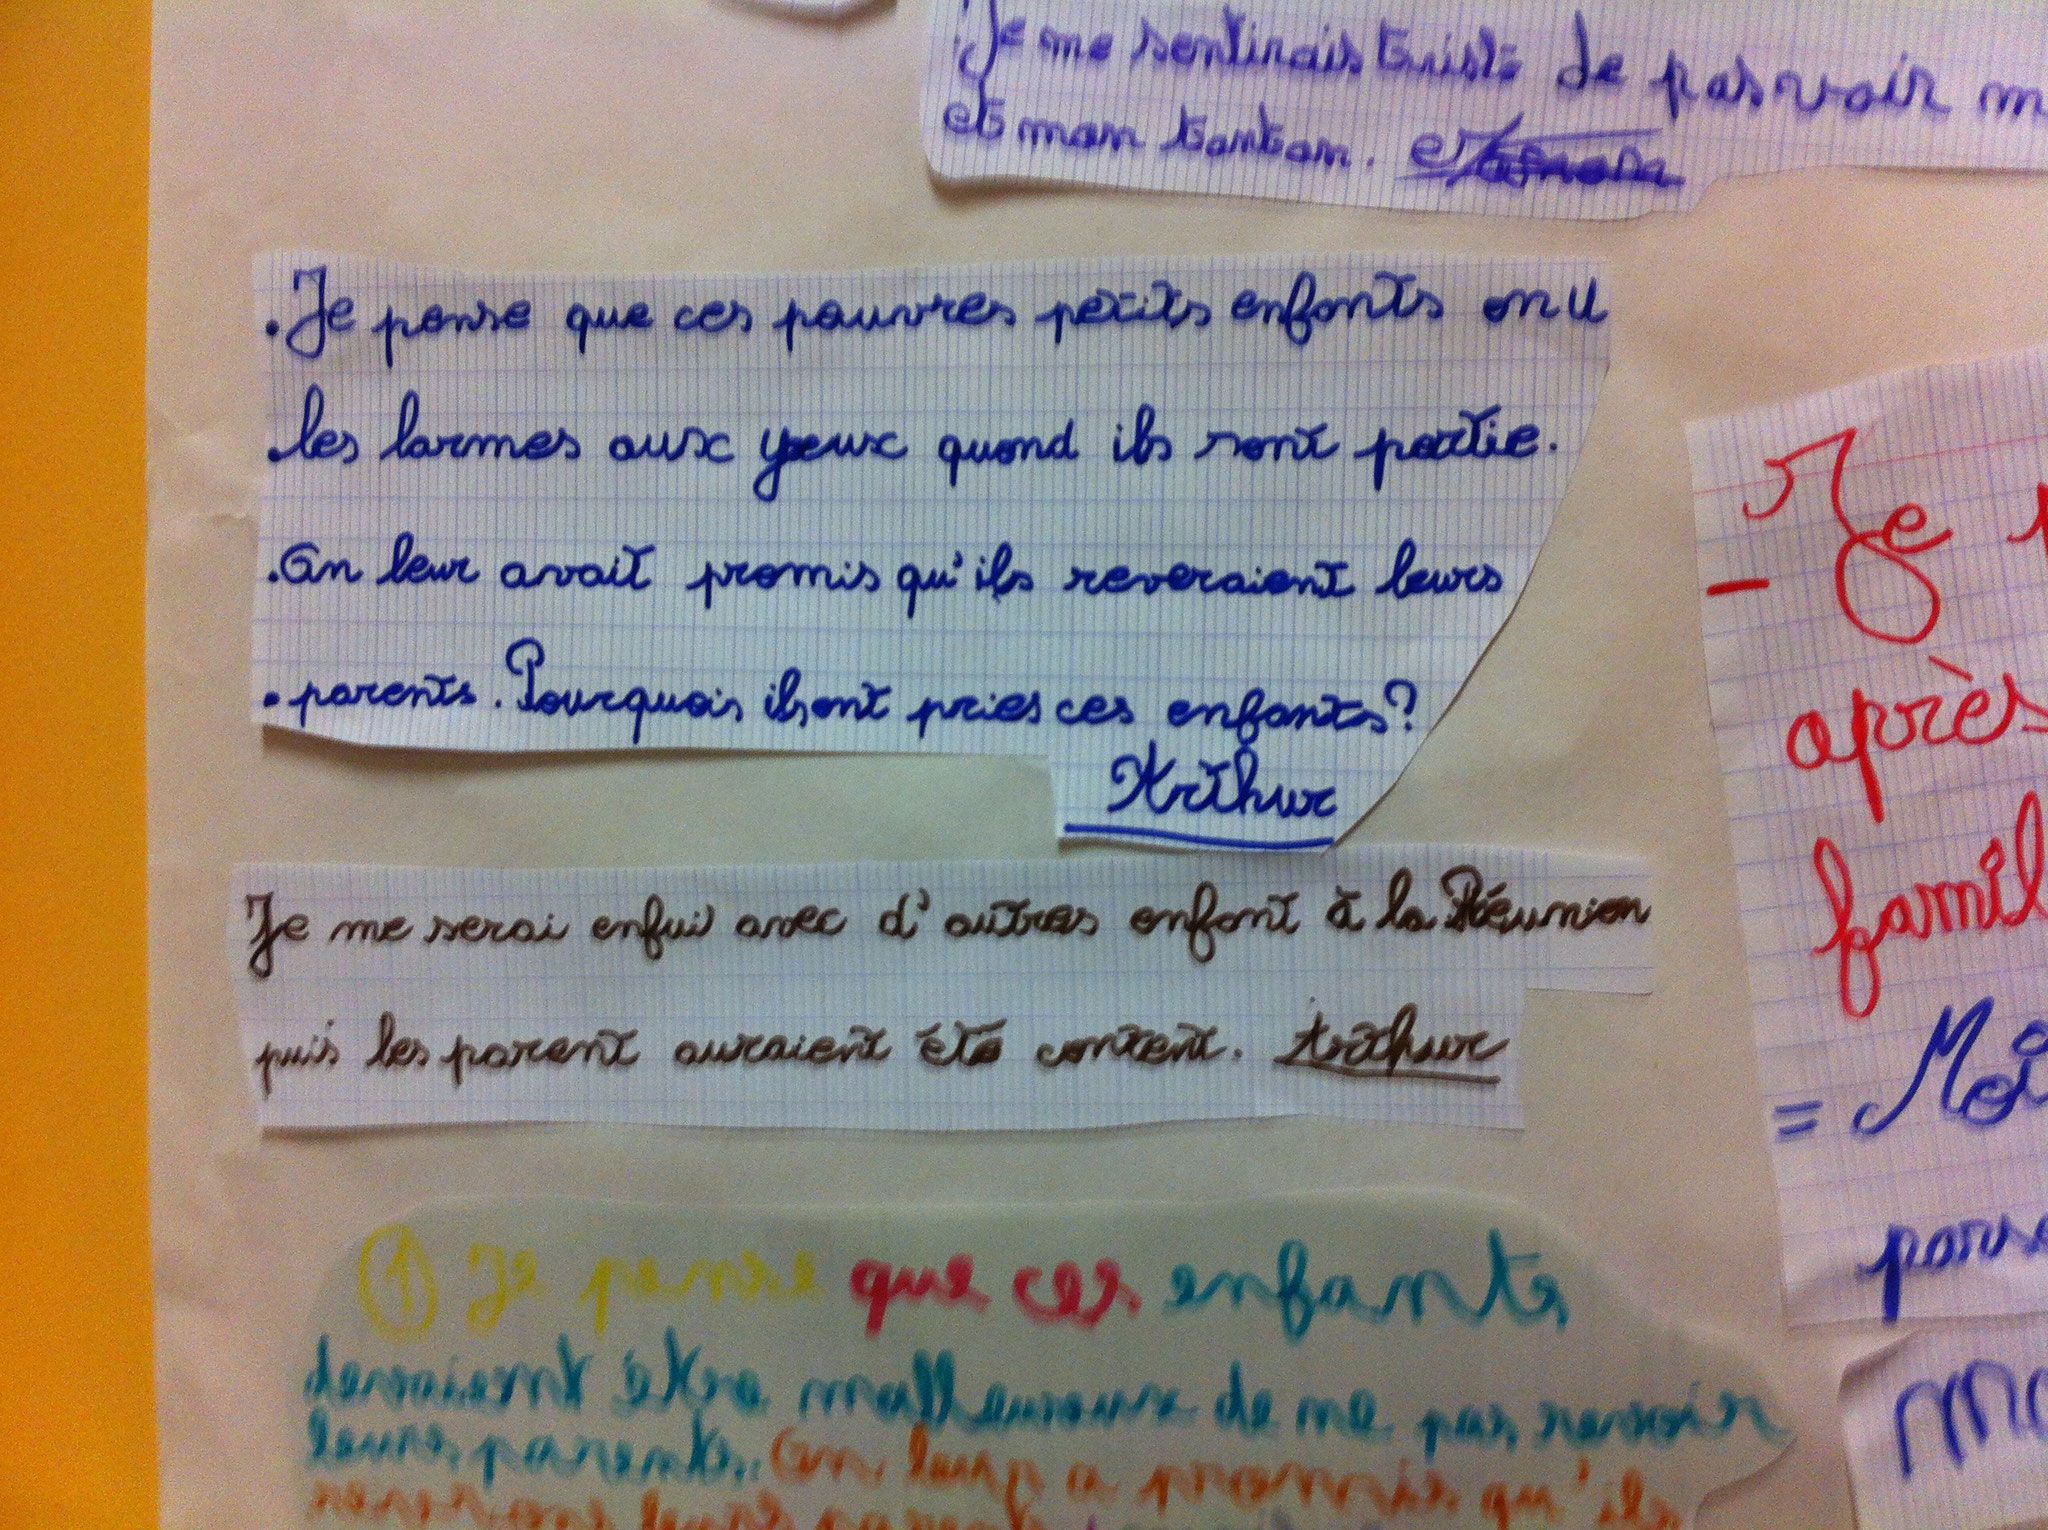 Je me sentirais triste de pas voir m
et mon tonton.
.Je pense que ces pauvres petits enfants on u
.les larmes aux yeux quand ils sont partie.
.On leur avait promis qu'ils reveraient leurs
.parents. Pourquois ils ont pries ces enfants?
Arthur
Je me serai enfui avec d'autres enfant à la Réunion
puis les parent auraient été content. Arthur
① Je pense que ces enfants
devraient être malheureux de me pas revoir
leurs parents. On leur a promis qu'ils
leurs
- Je
après
famil
= Moi
pense